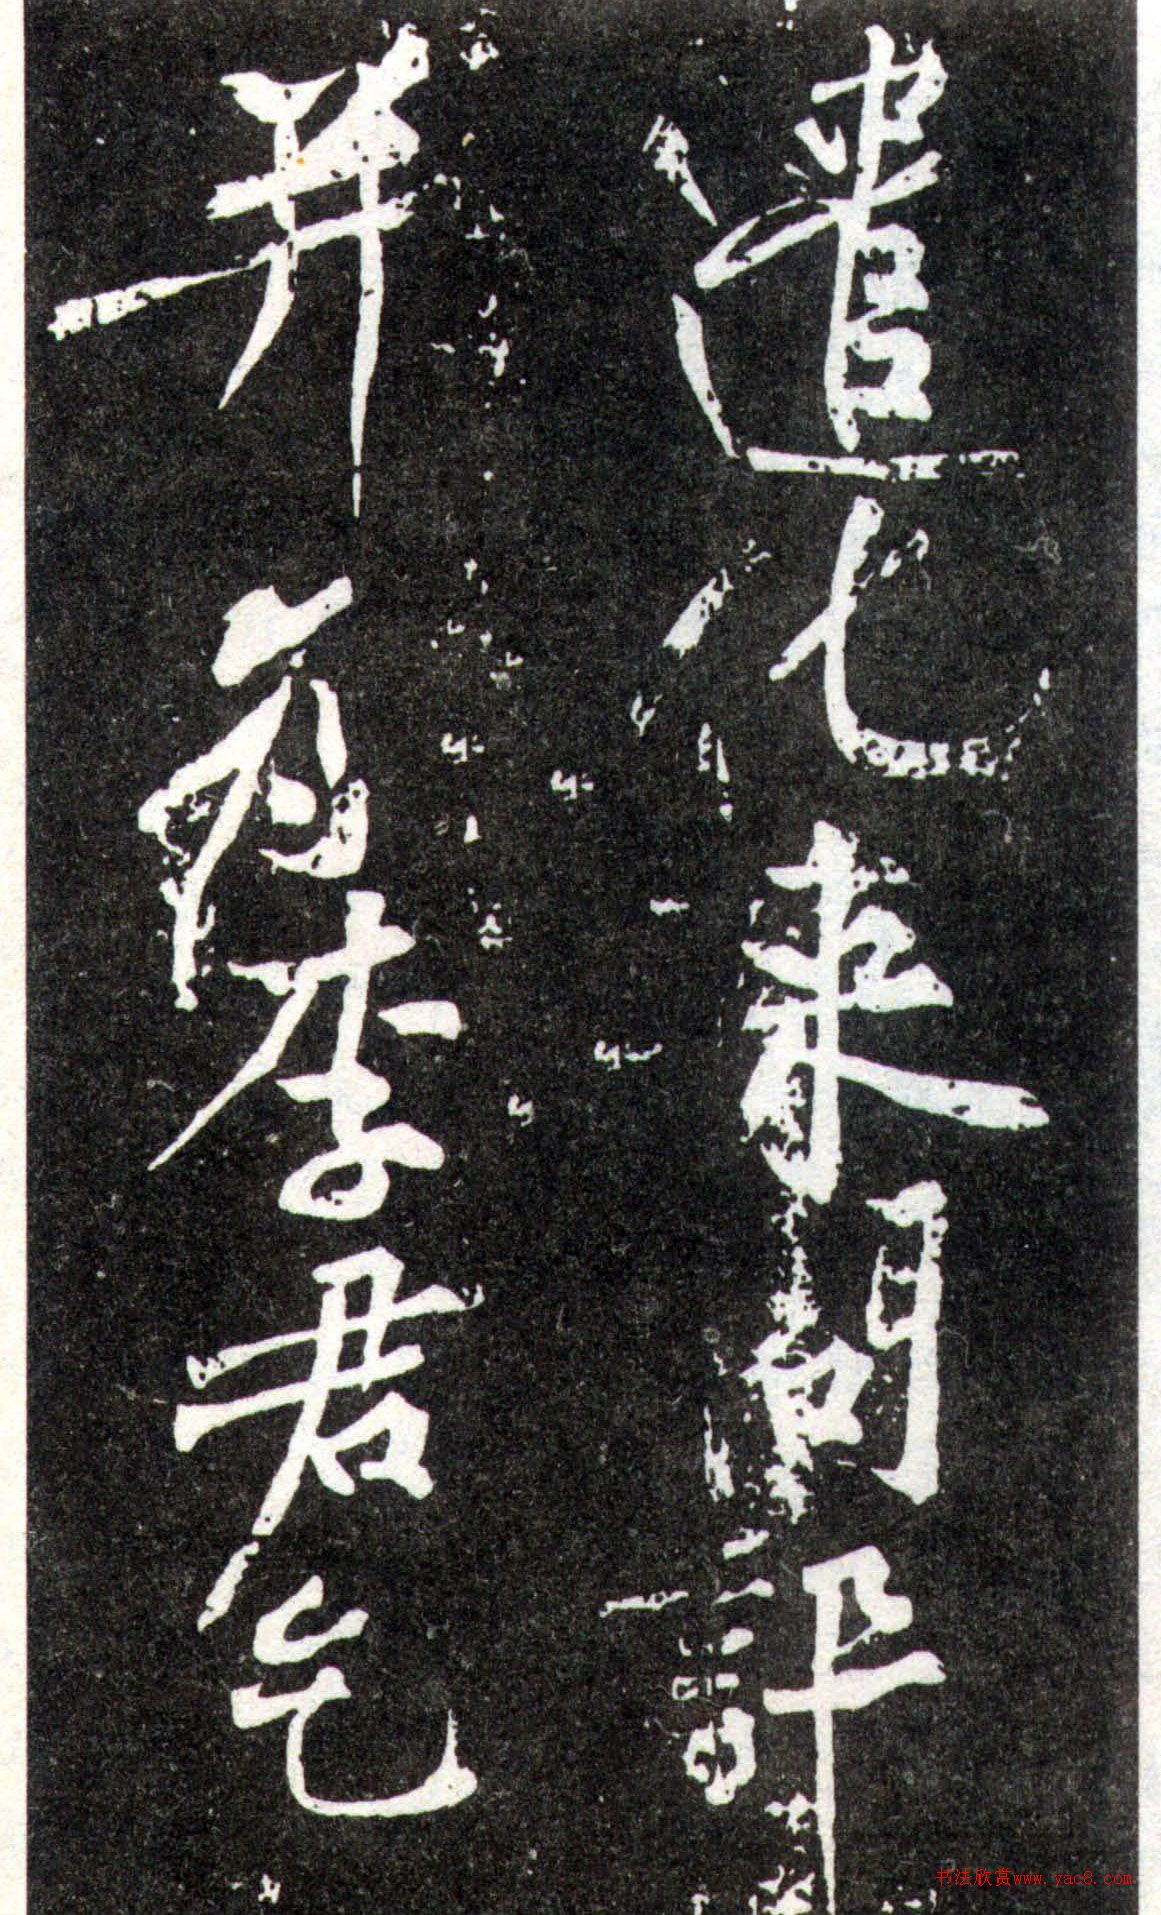 遣化来問訊
并為李君乞
书法欣赏www.yac8.com